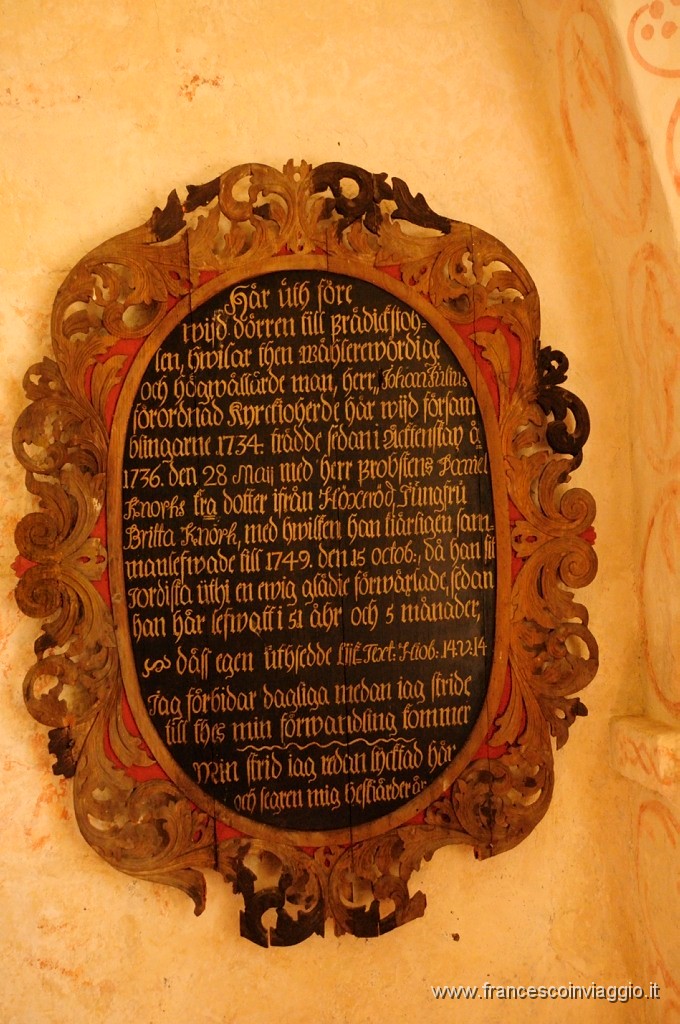 Hår ûth före
wijd dörren till Prådickstoh-
len, hwilar then Wåhlerewördige
och högwållärde man, herr, Johan Julius
förordnad Kyrckioherde här wijd försam
blingarne 1734. trådde sedan i Ächtenskap å
1736. den 28 Maij med herr Probstens Daniel
Knorks dotter ifrån Höxeröd, Jungfru
Britta Knörk, med hwilken han kiärligen sam-
manlefwade till 1749. den 15 octob:, då han sit
Jordiska üthi en ewig glådie förwårlade, sedan
han hår lefwatt i 51 åhr och 5 månader,
dåss egen üthsedde Text: Hiob: 14:V:14
Jag förbidar dagliga medan iag stride
till thes min förwandling kommer
Min strid iag redan lychtad hår
och segren mig beskiärder är
www.francescoinviaggio.it